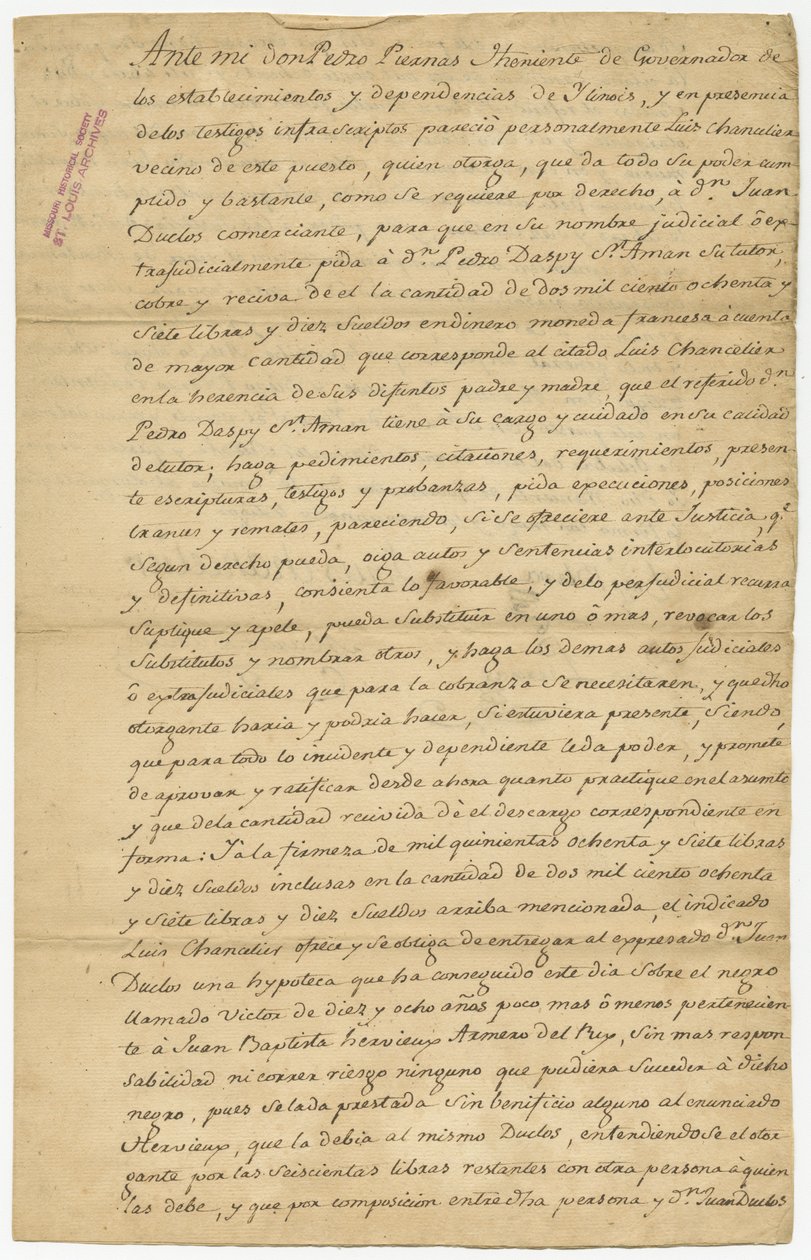 Ante mi don Pedro Piernas Theniente de Governador de
los establecimientos y dependencias de Ylinois, y en presencia
de los testigos infrascriptos pareciò personalmente Luis Chancelier
vecino de este puesto, quien otorga, que da todo su poder cum-
plido y bastante, como se requiere por derecho, à dn. Juan
Duclos comerciante, para que en su nombre judicial ô ex-
trajudicialmente pida à dn. Pedro Daspy St. Aman su tutor,
cobre y reciva de el la cantidad de dos mil ciento ochenta y
siete libras y diez sueldos en dinero moneda francesa à cuenta
de mayor cantidad que corresponde al citado Luis Chancelier
en la herencia de sus difintos padre y madre, que el referido dn.
Pedro Daspy St. Aman tiene à su cargo y cuidado en su calidad
de tutor; haga pedimientos, citaciones, requerimientos, presen-
te escripturas, testigos y probanzas, pida execuciones, posiciones
trances y remates, pareciendo, si se ofreciere ante Justicia, qe.
segun derecho pueda, oiga autos y sentencias interlocutorias
y definitivas, consienta lo favorable, y delo perjudicial recurra
suplique y apele, pueda substituir en uno ô mas, revocar los
substitutos y nombrar otros, y haga los demas autos judiciales
ô extrajudiciales que para la cobranza se necesitaren, y que dho
otorgante haria y podria hacer, si estuviera presente, siendo,
que para todo lo incidente y dependiente le da poder, y promete
de aprovar y ratificar desde ahora quanto practique en el asumto
y que dela cantidad recivida dè el descargo correspondiente en
forma: Y a la firmeza de mil quinientas ochenta y siete libras
y diez sueldos inclusas en la cantidad de dos mil ciento ochenta
y siete libras y diez sueldos arriba mencionada, el indicado
Luis Chancelier ofrece y se obliga de entregar al expresado dn. Juan
Duclos una hypoteca que ha conseguido este dia sobre el negro
llamado Victor de diez y ocho años poco mas ô menos pertenecien-
te à Juan Baptista Hervieux Armero del Rey, sin mas respon-
sabilidad ni correr riesgo ninguno que pudiera suceder à dicho
negro, pues se la da prestada sin benificio alguno al enunciado
Hervieux, que la debia al mismo Duclos, entendiendose el otor
gante por las seiscientas libras restantes con otra persona à quien
las debe, y que por composicion entre dha persona y dn. Juan Duclos
MISSOURI HISTORICAL SOCIETY
ST. LOUIS ARCHIVES